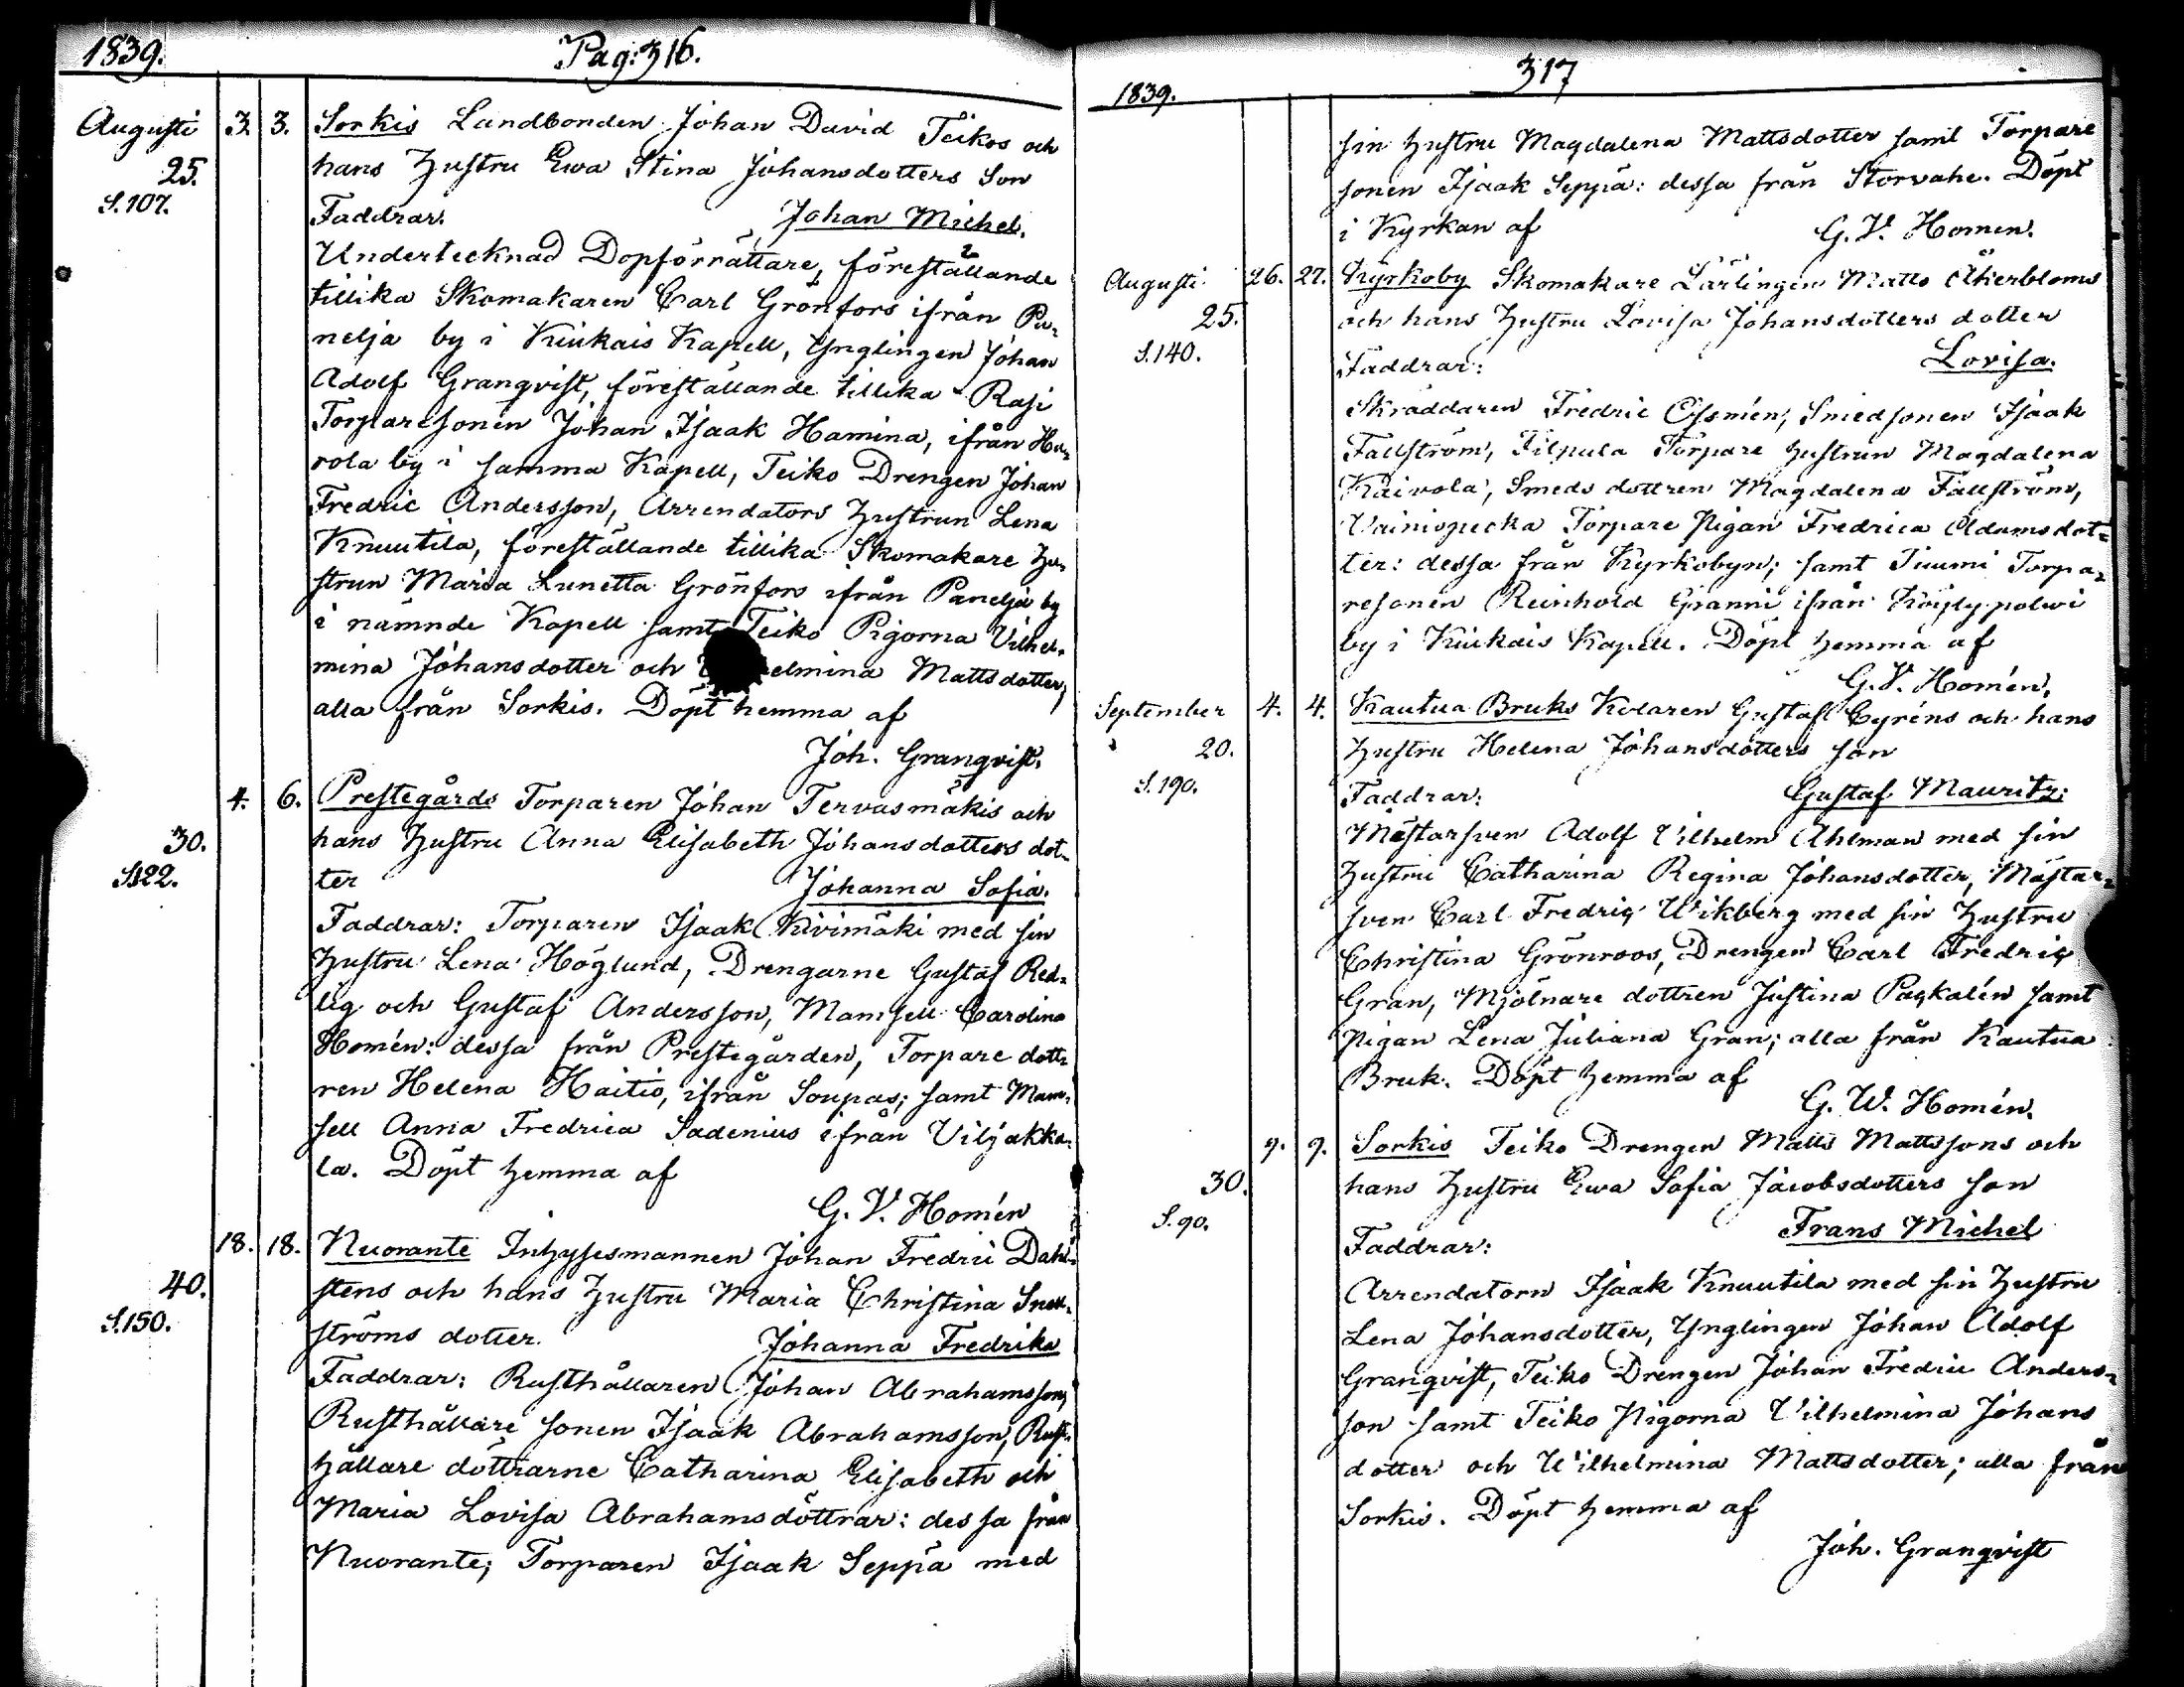 1839.
Pag: 316.
Augusti 3. 3. Sorkis Landbonden Johan David Teikos och
25. hans Hustru Ewa Stina Johansdotters Son
S. 107. Faddrar. Johan Michel.
Undertecknad Dopförrättare, föreställande
tillika Skomakaren Carl Grönfors ifrån Pa-
nelja by i Kiukais Kapell, Ynglingen Johan
Adolf Granqvist, föreställande tillika Rasi
Torparesonen Johan Isaak Hamina, ifrån Ha-
rola by i samma Kapell, Teiko Drengen Johan
Fredric Andersson, Arrendators Hustrun Lena
Knuutila, föreställande tillika Skomakare Hu-
strun Maria Lunetta Grönfors ifrån Panelja by
i nämnde Kapell samt Teiko Pigorna Vilhel-
mina Johansdotter och elmina Mattsdotter,
alla från Sorkis. Döpt hemma af
Joh. Granqvist.
4. 6. Prestegårds Torparen Johan Tervasmäkis och
30. hans Hustru Anna Elisabeth Johansdotters dot-
S.122. ter Johanna Sofia.
Faddrar: Torparen Isaak Kivimäki med sin
Hustru Lena Höglund, Drengarne Gustaf Red-
lig och Gustaf Andersson, Mamsell Carolina
Homén: dessa från Prestegården, Torpare dott-
ren Helena Haitio, ifrån Soupas; samt Mam-
sell Anna Fredrica Sadenius ifrån Viljakka-
la. Döpt hemma af
G. V. Homén
18. 18. Nuorante Inhysesmannen Johan Fredric Dahl-
40. stens och hans Hustru Maria Christina Snell-
S.150. ströms dotter. Johanna Fredrika
Faddrar: Rusthållaren Johan Abrahamsson,
Rusthållare sonen Isaak Abrahamsson, Rust-
hållare döttrarne Catharina Elisabeth och
Maria Lovisa Abrahamsdöttrar: dessa från
Nuorante; Torparen Isaak Seppä med
317
1839.
sin Hustru Magdalena Mattsdotter samt Torpare
sonen Isaak Seppä: dessa från Storvahe. Döpt
i Kyrkan af G. V. Homen.
Augusti 26. 27. Kyrkoby Skomakare Lärlingen Matts Åkerbloms
25. och hans Hustru Lovisa Johansdotters dotter
S.140. Faddrar: Lovisa.
Skräddaren Fredric Ossmén, Smedsonen Isaak
Fallström, Filpula Torpare hustrun Magdalena
Kaivola, Smeds dottren Magdalena Fallström,
Vainiopecka Torpare Pigan Fredrica Adamsdot-
ter: dessa från Kyrkobyn; samt Tuumi Torpa-
resonen Reinhold Granni ifrån Köylypolwi
by i Kiukais Kapell. Döpt hemma af
G. V. Homén.
September 4. 4. Kautua Bruks Kolaren Gustaf Cyréns och hans
20. Hustru Helena Johansdotters son
S.190. Faddrar: Gustaf Mauritz:
Mästarsven Adolf Vilhelm Ahlman med sin
Hustru Catharina Regina Johansdotter, Mästar-
sven Carl Fredriq Wikberg med sin Hustru
Christina Grönroos, Drengen Carl Fredriq
Gran, Mjölnare dottren Justina Paqkalén samt
Pigan Lena Juliana Gran; alla från Kautua
Bruk. Döpt hemma af
G. W. Homén.
9. 9. Sorkis Teiko Drengen Matts Mattssons och
30. hans Hustru Ewa Sofia Jacobsdotters son
S.90. Faddrar: Frans Michel
Arrendatorn Isaak Knuutila med sin Hustru
Lena Johansdotter, Ynglingen Johan Adolf
Granqvist, Teiko Drengen Johan Fredric Anders-
son samt Teiko Pigorna Vilhelmina Johans
dotter och Wilhelmina Mattsdotter; alla från
Sorkis. Döpt hemma af
Joh. Granqvist